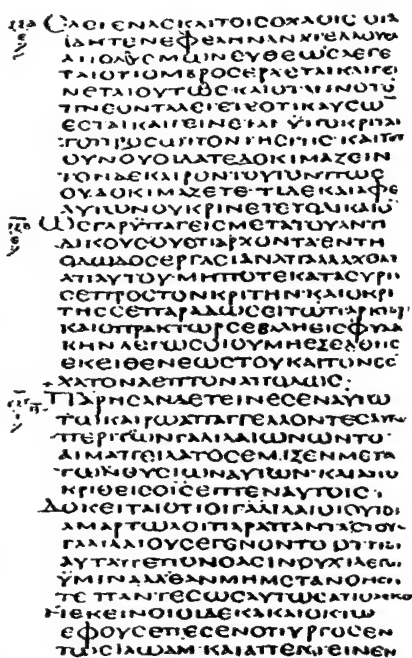 ЄΛЄΓЄΝΔЄΚΑΙΤΟΙϹΟΧΛΟΙϹ ΟΤΑ
ΙΔΗΤЄΝЄΦЄΛΗΝΑΝΑΤЄΛΛΟΥϹΑ
ΑΠΟΔΥϹΜΩΝЄΥΘЄΩϹΛЄΓЄ
ΤΑΙΟΤΙΟΜΒΡΟϹЄΡΧЄΤΑΙΚΑΙΓЄΙ
ΝЄΤΑΙΟΥΤΩϹΚΑΙΟΤΑΝΝΟΤΟ
ΠΝЄΟΝΤΑΛЄΓЄΤЄΟΤΙΚΑΥϹΩ
ЄϹΤΑΙΚΑΙΓЄΙΝЄΤΑΙΫΠΟΚΡΙΤΑΙ
ΤΟΠΡΟϹΩΠΟΝΤΗϹΓΗϹ ΚΑΙΤΟΥ
ΟΥΝΟΥΟΙΔΑΤЄΔΟΚΙΜΑΖЄΙΝ
ΤΟΝΔЄΚΑΙΡΟΝΤΟΥΤΟΝΠΩϹ
ΟΥΔΟΚΙΜΑΖЄΤЄ·ΤΙΔЄΚΑΙΑΦЄ
ΑΥΤΩΝΟΥΚΡΙΝЄΤЄΤΟΔΙΚΑΙΟ
ΩϹΓΑΡΫΠΑΓЄΙϹΜЄΤΑΤΟΥΑΝΤΙ
ΔΙΚΟΥϹΟΥЄΠΑΡΧΟΝΤΑЄΝΤΗ
ΟΔΩΔΟϹЄΡΓΑϹΙΑΝΑΠΑΛΛΑΧΘΑΙ
ΑΠΑΥΤΟΥ·ΜΗΠΟΤЄΚΑΤΑϹΥΡΗ
ϹЄΠΡΟϹΤΟΝΚΡΙΤΗΝ·ΚΑΙΟΚΡΙ
ΤΗϹϹЄΠΑΡΑΔΩϹЄΙΤΩΠΡΑΚΤΟΡΙ
ΚΑΙΟΠΡΑΚΤΩΡϹЄΒΑΛΗЄΙϹΦΥΛΑ
ΚΗΝΛЄΓΩϹΟΙΟΥΜΗЄΞЄΛΘΗϹ
ЄΚЄΙΘЄΝЄΩϹΤΟΥΚΑΙΤΟΝЄϹ
ΧΑΤΟΝΛЄΠΤΟΝΑΠΟΔΩϹ:
ΠΑΡΗϹΑΝΔЄΤΙΝЄϹЄΝΑΥΤΩ
ΤΩΚΑΙΡΩΑΠΑΓΓЄΛΛΟΝΤЄϹΑΥΤΩ
ΠЄΡΙΤΩΝΓΑΛΙΛΑΙΩΝΩΝΤΟ
ΑΙΜΑΠЄΙΛΑΤΟϹЄΜΙΞЄΝΜЄΤΑ
ΤΩΝΘΥϹΙΩΝΑΥΤΩΝ·ΚΑΙΑΠΟ
ΚΡΙΘЄΙϹΟΙϹЄΙΠЄΝΑΥΤΟΙϹ·
ΔΟΚЄΙΤΑΙΟΤΙΟΙΓΑΛΙΛΑΙΟΙΟΥΤΟΙ
ΑΜΑΡΤΩΛΟΙΠΑΡΑΠΑΝΤΑϹΤΟΥϹ
ΓΑΛΙΛΑΙΟΥϹЄΓЄΝΟΝΤΟ ΟΤΙΤΟΙ
ΑΥΤΑΠЄΠΟΝΘΑϹΙΝΟΥΧΙΛЄΓΩ
ΫΜΙΝΑΛΛΑЄΑΝΜΗΜЄΤΑΝΟΗϹΗ
ΤЄ ΠΑΝΤЄϹΩϹΑΥΤΩϹΑΠΟΛЄΙϹΘΑΙ
ΗЄΚЄΙΝΟΙΟΙΔЄΚΑΚΑΙΟΚΤΩ
ЄΦΟΥϹЄΠЄϹЄΝΟΠΥΡΓΟϹЄΝ
ΤΩϹΙΛΩΑΜ·ΚΑΙΑΠЄΚΤЄΙΝЄΝ